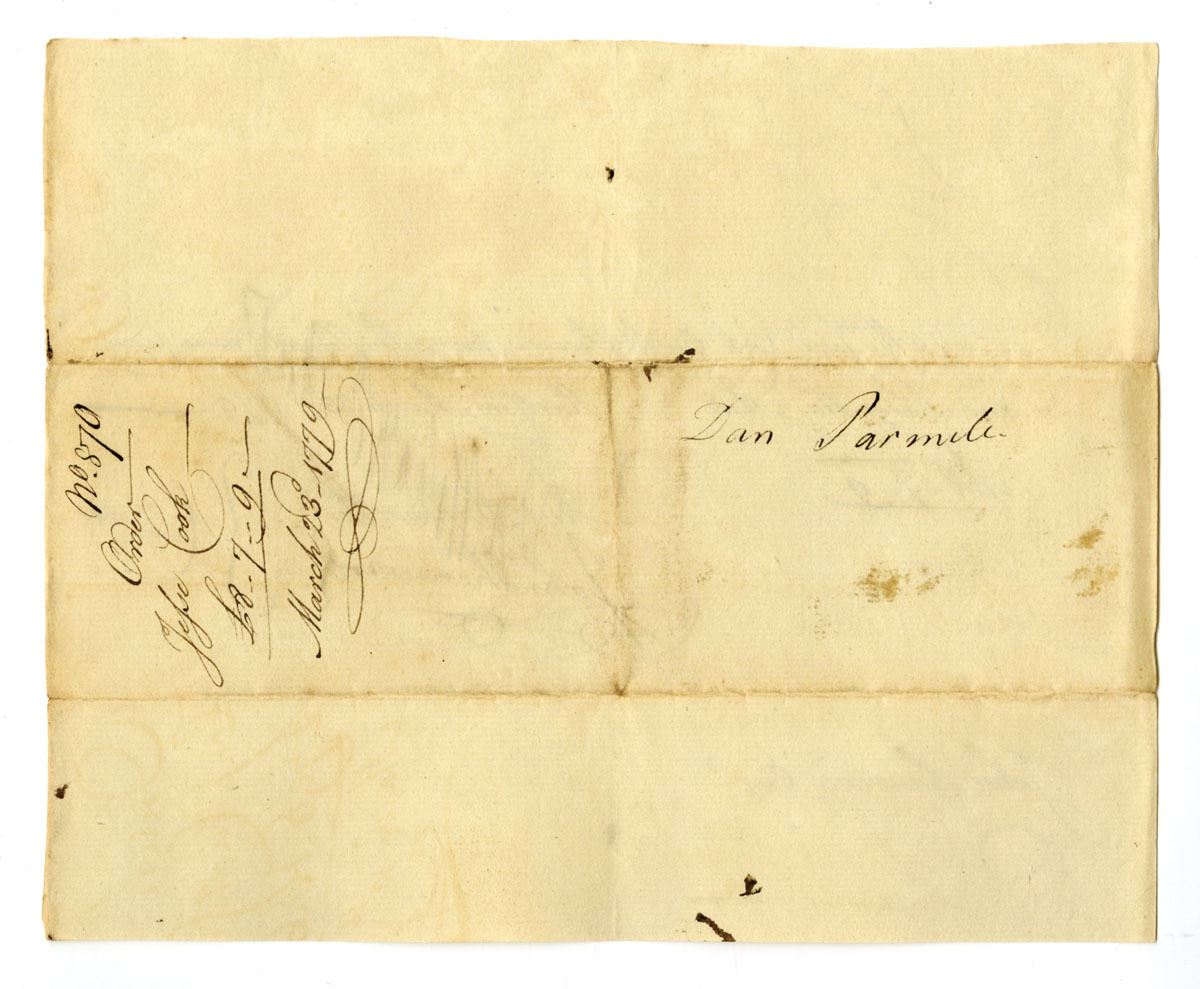 No. 870
Order
Jesse Cook
£8-7-9-
March 23d 1779
Dan Parmele